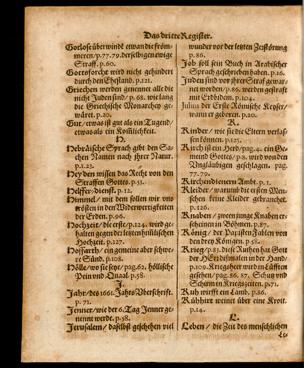 Das dritte Register.
Gotlose überwindt etwan die fröm-
mere/ p.77.79. derselbigen ewige
Straff. p.60.
Gottsforcht wird nicht gehindert
durch den Ehestand. p.121.
Griechen werden genennt alle die
nicht Juden sind/ p. 68. wie lang
die Griechische Monarchey ge-
wäret. p.20.
Gut/ etwas ist gut als ein Tugend/
etwas als ein Köstlichkeit.
H.
Hebräische Sprach gibt den Sa-
chen Namen nach ihrer Natur.
p.1.23.
Heyden wissen das Recht von den
Straffen Gottes. p.51.
Helffer/ dienst. p.12.
Himmel/ mit dem sollen wir uns
trösten in den Widerwertigkeiten
der Erden. p.96.
Hochzeit/ die erste/ p.124. wird ge-
halten gegen der letzten hüllischen
Hochzeit. p.127.
Hoffarth/ ein gemeine aber schwe-
re Sünd. p.108.
Hölle/ wo sie seye/ pag.62. höllische
Pein und Quaal. p.58.
J.
Jahr/ des 1661. Jahrs Uberschrifft.
p.71.
Jenner/ wie der 6. Tag Jenner ge-
nennt werde. p.38.
Jerusalem/ daselbst geschehen viel
wunder vor der letzten Zerstörung
p.86.
Job soll sein Buch in Arabischer
Sprach geschrieben haben. p.16.
Juden sind vor ihrer Straf gewar-
net worden/ p.89. werden gestrafft
mit Erdbidem. p.104.
Julius der Erste Römische Keyser/
wann er geboren. p.20.
K.
Kinder/ wie sie die Eltern verlas-
sen können. p.121.
Kirch ist ein Herd/ pag.4. ein Ge-
meind Gottes/ p.8. wird von den
Ungläubigen geschlagen. pag.
77.79.
Kirchendienern Ambt. p.1.
Kleider/ warumb die ersten Men-
schen keine Kleider gebrauchet.
p.120. 126.
Knaben/ zween junge Knaben er-
scheinen in Böhmen. p.87.
König/ der Papisten Fablen von
den drey Königen. p.40.
Krieg/ p.83. diese Ruthen hat Gott
der Herr dismalen in der Hand/
p.100. Kriegsheer wird im Lufften
gesehen/ pag. 86. 87. Schutz und
Schirm in Kriegszeiten. p.71.
Kuh wirfft ein Lamb. p.86.
Kühhirt weinet über eine Krott.
p.14.
L.
Leben/ die Zeit des menschlichen